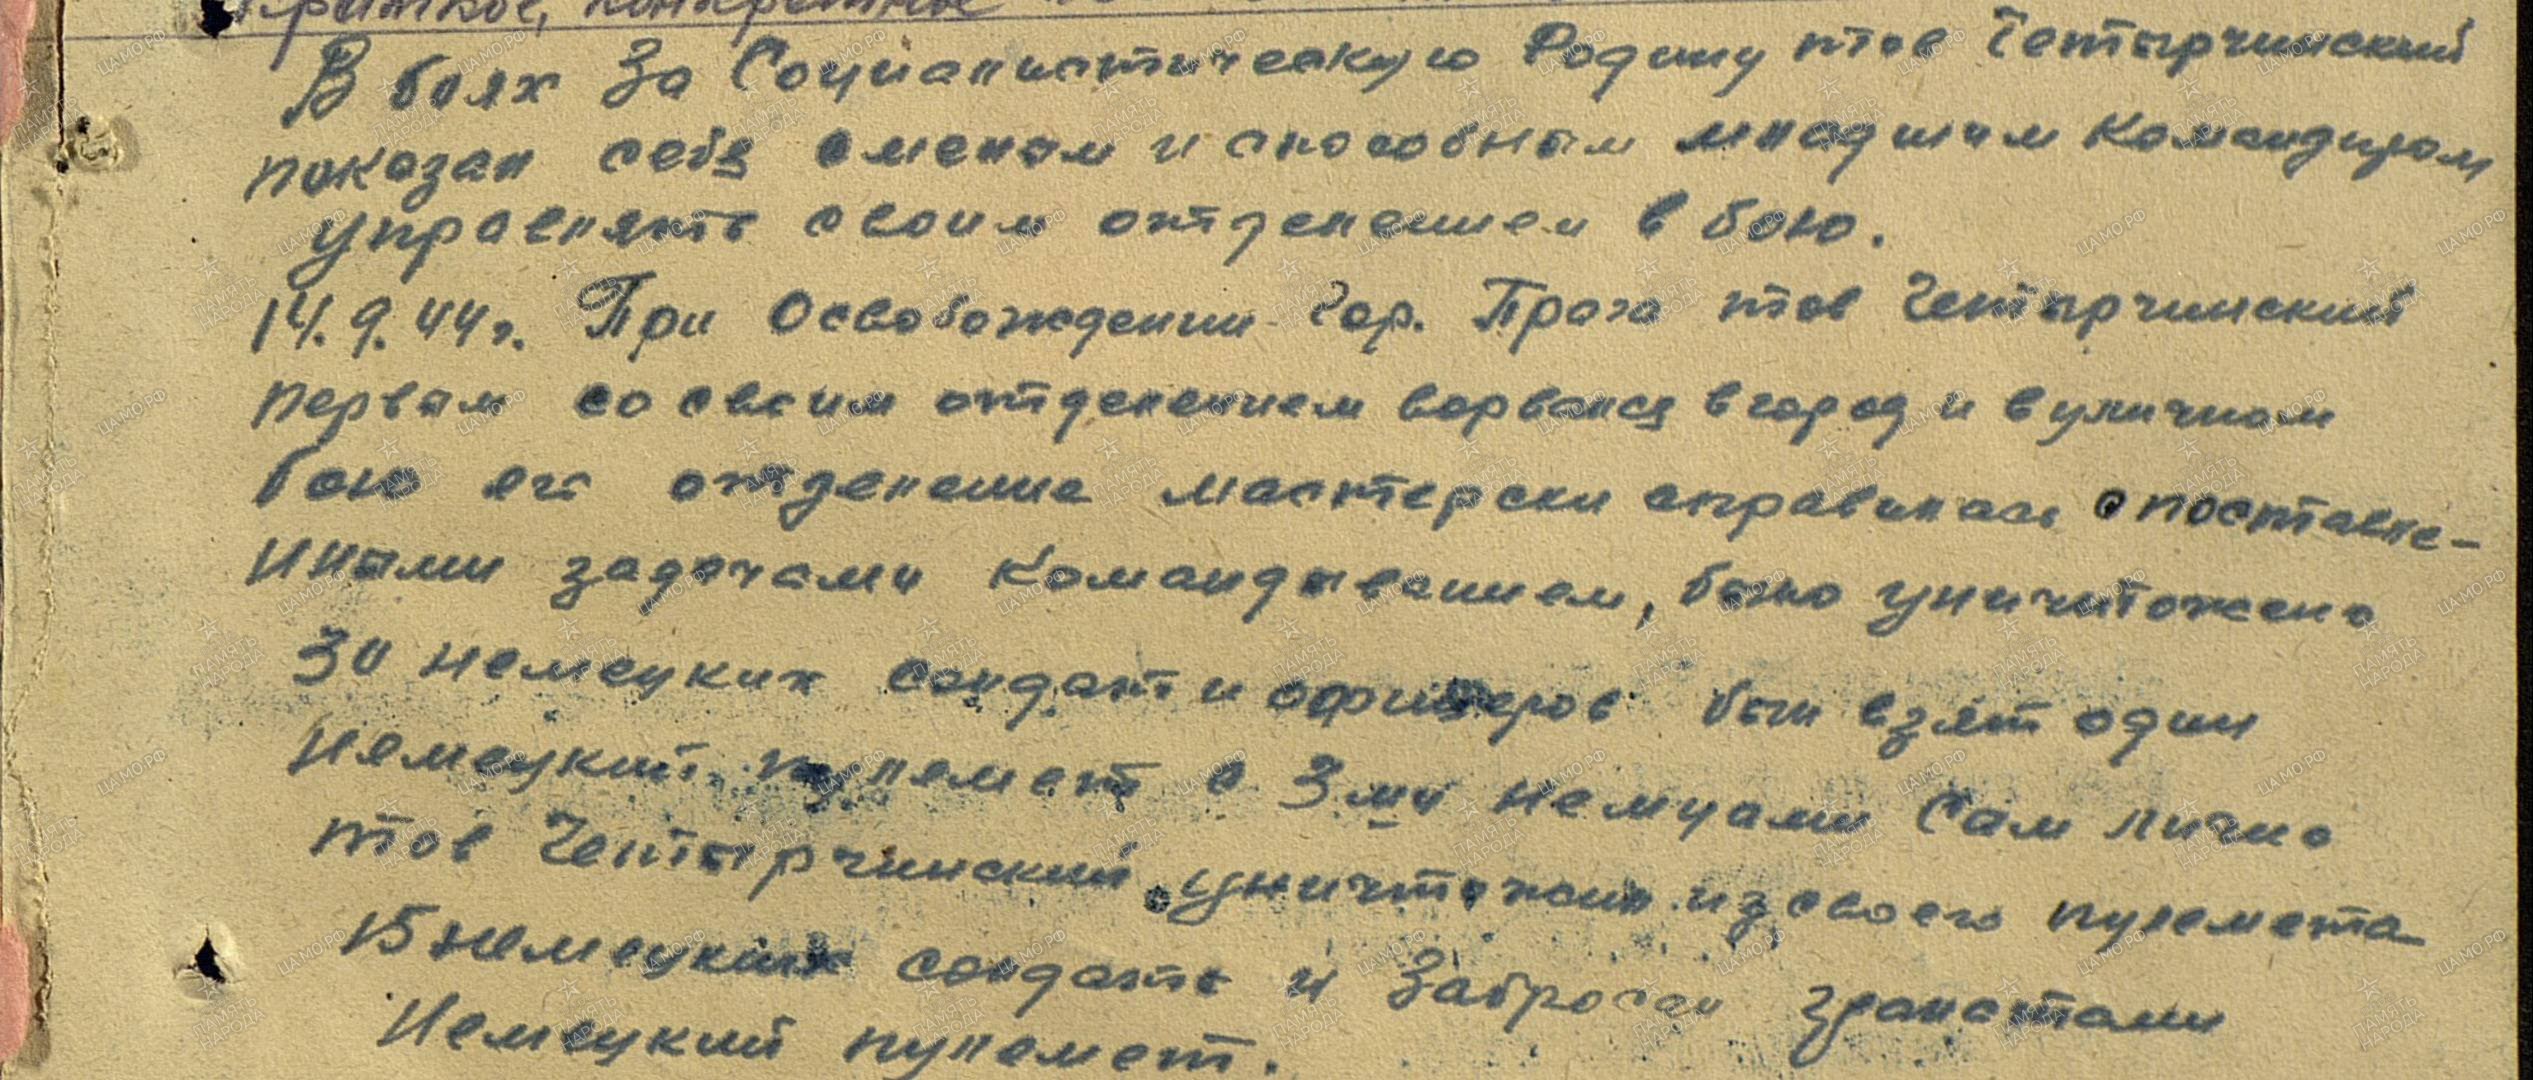 Краткое, конкретное
В боях За Социалистическую Родину тов Четырчинский
показал себя смелым и способным младшим Командиром
управлять своим отделением в бою.
14.9.44 г. При Освобождении Гор. Прага тов Четырчинский
первым со своим отделением ворвался в город и в уличном
бою его отделение мастерски справилась с поставле-
нными задачами Командыванием, было уничтожено
30 немецких солдат и офицеров был взят один
немецкий пулемет с 3 ми немцами Сам лично
тов Четырчинский уничтожил из своего пулемета
15 немецких солдать и Забросал гранатами
Немецкий пулемет.